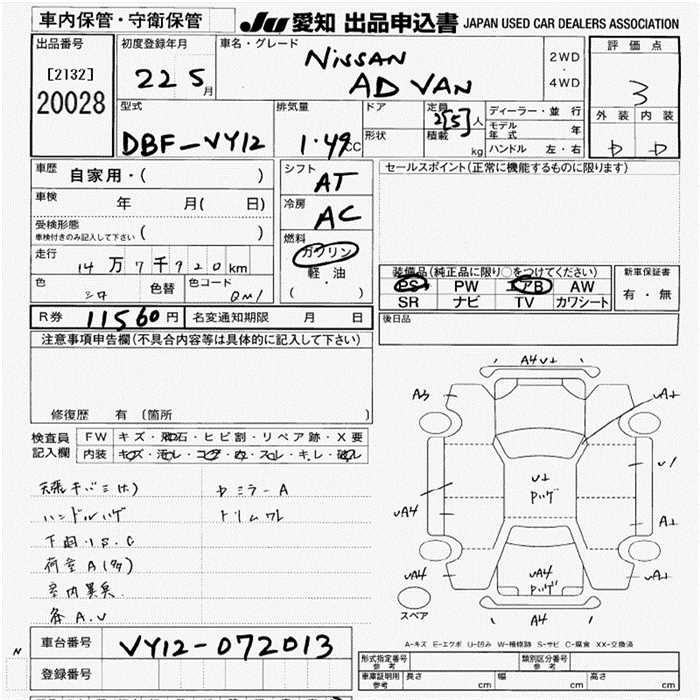 車内保管・守衛保管
JU 愛知 出品申込書 JAPAN USED CAR DEALERS ASSOCIATION
出品番号
[2132]
20028
初度登録年月
22 5月
車名・グレード
NISSAN
AD VAN
2WD
・
4WD
評価点
3
外装 内装
D D
型式
DBF-VY12
排気量
1.49CC
ドア
形状
定員
2[5]人
積載
kg
ディーラー・並行
モデル年式 年
ハンドル 左・右
車歴
自家用・( )
車検
年 月( 日)
受検形態
車検付きのみ記入して下さい ( )
走行
14万7千920km
色
シロ
色替
色コード
QM1
シフト
AT
冷房
AC
燃料
ガソリン
軽・油
( )
セールスポイント(正常に機能するものに限ります)
装備品(純正品に限り○をつけてください)
PS PW エアB AW
SR ナビ TV カワシート
新車保証書
有・無
R券 11560円 名変通知期限 月 日
後日品
注意事項申告欄(不具合内容等は具体的に記入して下さい)
修復歴 有 (箇所 )
検査員
記入欄
FW キズ・飛石・ヒビ割・リペア跡・X要
内装 キズ・汚レ・コゲ・穴・スレ・キレ・破レ
ハンドルハゲ
下回りS.C
荷室A(多)
室内異臭
各A.U
ミラーA
トリムワレ
A4
A3
U1
UA4
A4
スペア
A-キズ E-エクボ U-凹み W-補修跡 S-サビ C-腐食 XX-交換済
車台番号
VY12-072013
登録番号
N
形式指定番号
参考
類別区分番号
参考
車庫証明用
参考
長さ cm 幅 cm 高さ cm